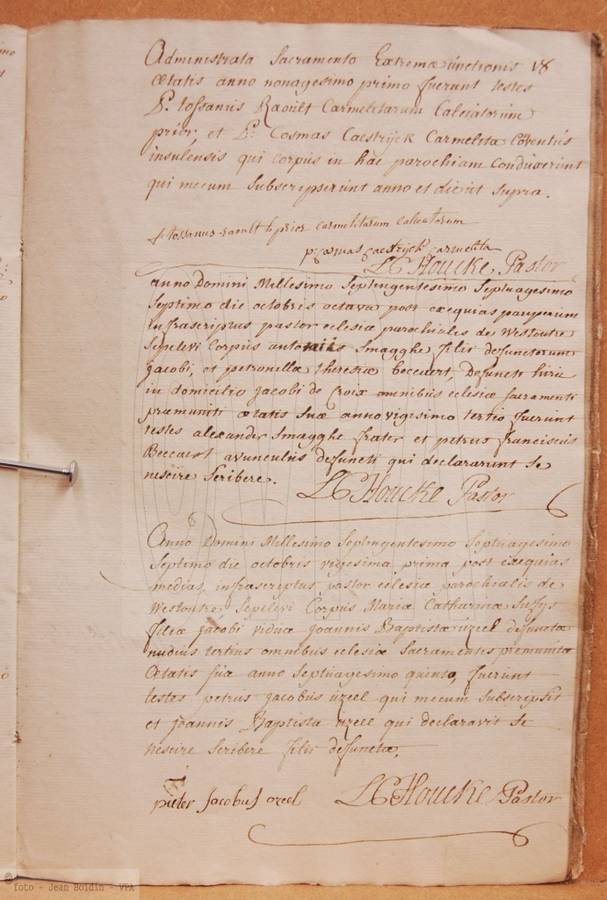 Administrata Sacramento Extremæ unctionis
Ætatis anno nonagesimo primo fuerunt testes
P. tossanus Raoult Carmelitarum Calciatorum
prior et P. Cosmas Caestrijck Carmelita Coventus
insulensis qui corpus in hac parochiam conduxerunt
qui mecum subscripserunt anno et die ut supra.
f. tossanus raoult prior carmelitarum calceatorum
p. cosmas caestrijck carmelita
Houcke Pastor
anno Domini Millesimo Septengentesimo Septuagesimo
Septimo die octobris octava post exequias pauperum
infrascriptus pastor eclesiæ parochiales de Westoutre
Sepelevi Corpus antonii Smagghe filii defunctorum
Jacobi, et petronilla theresiæ beccaert, defuncti heri
in domicilio Jacobi de Croix omnibus eclesiæ sacramentis
præmuniti ætatis suæ anno vigesimo tertio fuerunt
testes alexander Smagghe frater et petrus franciscus
Beccaert avunculus defuncti qui declararunt se
nescire scribere.
Houcke Pastor
Anno Domini Millesimo Septengentesimo Septuagesimo
Septimo die octobris vigesima prima post exequias
medias, infrascriptus pastor eclesiæ parochialis de
Westoutre Sepelevi Corpus Mariæ Catharinæ
filiæ Jacobi viduæ Joannis Baptistæ üzeel defunctæ
nudius tertius omnibus eclesiæ Sacramentis premunita
Ætatis suæ anno Septuagesimo quinto, fuerunt
testes petrus Jacobus üzeel qui mecum subscripsit
et Joannis Baptista üzeel qui declaravit se
nescire scribere filii defunctæ,
pieter Jacobus ozeel
Houcke Pastor
foto - Jean Boidin - VPA